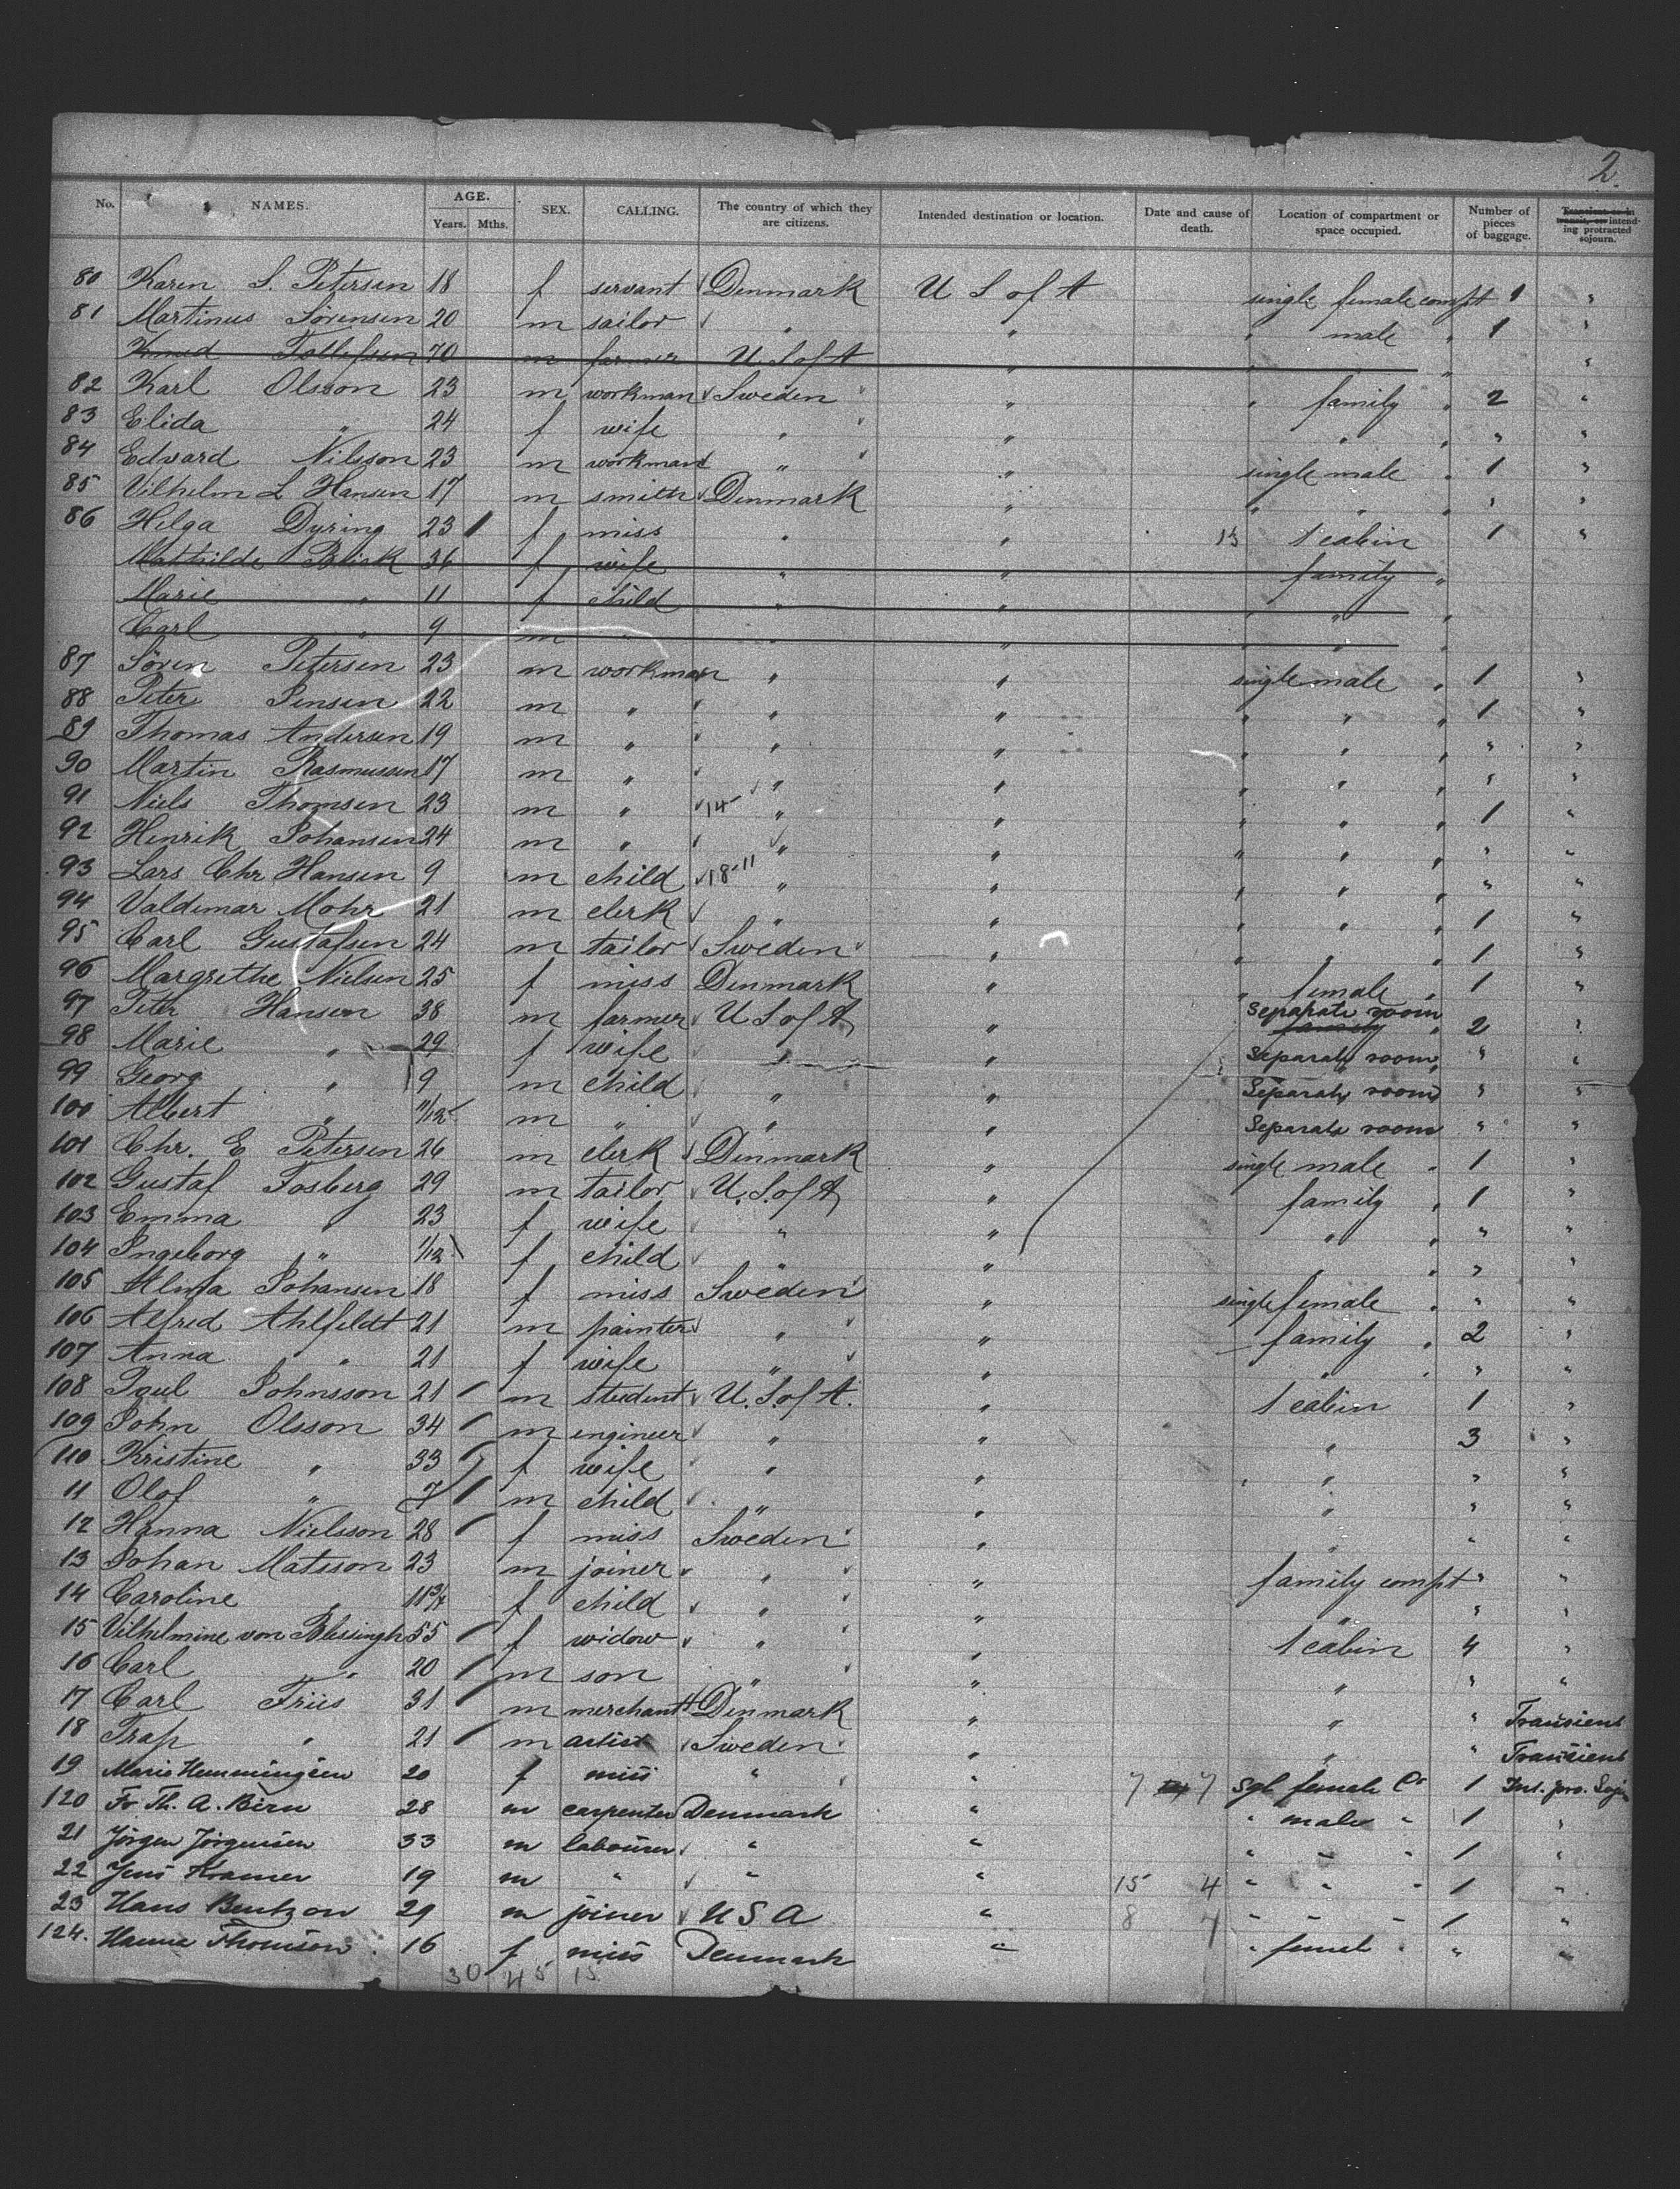 2.
No. NAMES. AGE. Years. Mths. SEX. CALLING. The country of which they are citizens. Intended destination or location. Date and cause of death. Location of compartment or space occupied. Number of pieces of baggage. Transient or in transit, or intending protracted sojourn.
80 Karen S. Petersen 18 f servant Denmark U S of A single female compt 1 "
81 Martinus Sörensen 20 m sailor " " " male " 1 "
Knud Tollefsen 70 m farmer U. S of A " " " "
82 Karl Olsson 23 m workman Sweden " " family " 2 "
83 Elida " 24 f wife " " " " " "
84 Edvard Nilsson 23 m workman " " single male " 1 "
85 Vilhelm L Hansen 17 m smith Denmark " " " " " "
86 Helga Dyring 23 f miss " " 13 1 cabin 1 "
Mathilde Brisk 36 f wife " " family "
Marie " 11 f child " " " " "
Carl " 9 m " " " " " "
87 Sören Petersen 23 m workman " " single male " 1 "
88 Peter Jensen 22 m " " " " " " 1 "
89 Thomas Andersen 19 m " " " " " " " "
90 Martin Rasmussen 17 m " " " " " " " "
91 Niels Thomsen 23 m " 14 " " " " " 1 "
92 Henrik Johansen 24 m " " " " " " " "
93 Lars Chr Hansen 9 m child 18-11 " " " " " " "
94 Valdemar Mohr 21 m clerk " " " " " 1 "
95 Carl Gustafsen 24 m tailor Sweden " " " " 1 "
96 Margrethe Nielsen 25 f miss Denmark " " female " 1 "
97 Peter Hansen 38 m farmer U. S of A " Separate room family " 2 "
98 Marie " 29 f wife " " Separate room " "
99 Georg " 9 m child " " Separate room " "
100 Albert " 11/12 m " " " Separate room " "
101 Chr. E Petersen 26 m clerk Denmark " single male " 1 "
102 Gustaf Fosberg 29 m tailor U. S. of A " family " 1 "
103 Emma " 23 f wife " " " " " "
104 Ingeborg " 1/12 f child " " " " " "
105 Alma Johansen 18 f miss Sweden " single female " " "
106 Alfred Ahlfeldt 21 m painter " " family " 2 "
107 Anna " 21 f wife " " " " " "
108 Paul Johnsson 21 m student U. S. of A. " 1 cabin 1 "
109 John Olsson 34 m engineer " " " 3 "
110 Kristine " 33 f wife " " " " "
11 Olof " 7 m child " " " " "
12 Hanna Nielsson 28 f miss Sweden " " " "
13 Johan Matsson 23 m joiner " " family compt " "
14 Caroline " 11 3/4 f child " " " " "
15 Vilhelmine von Blessingh 55 f widow " " 1 cabin 4 "
16 Carl " 20 m son " " " " "
17 Carl Friis 31 m merchant Denmark " " " Transient
18 Trap " 21 m artist Sweden " " " Transient
19 Marie Hemmingsen 20 f miss " " 7 7 Sgl female Ct 1 Int. pro. Soj
120 Fr Th. A. Bern 28 m carpenter Denmark " " male " 1 "
21 Jörgen Jörgensen 33 m labourer " " " " " 1 "
22 Jens Kramer 19 m " " " 15 4 " " " 1 "
23 Hans Bentzon 29 m joiner U S A " 8 4 " " " 1 "
124. Hanne Thomsen 16 f miss Denmark " " femal " " "
30 45 15